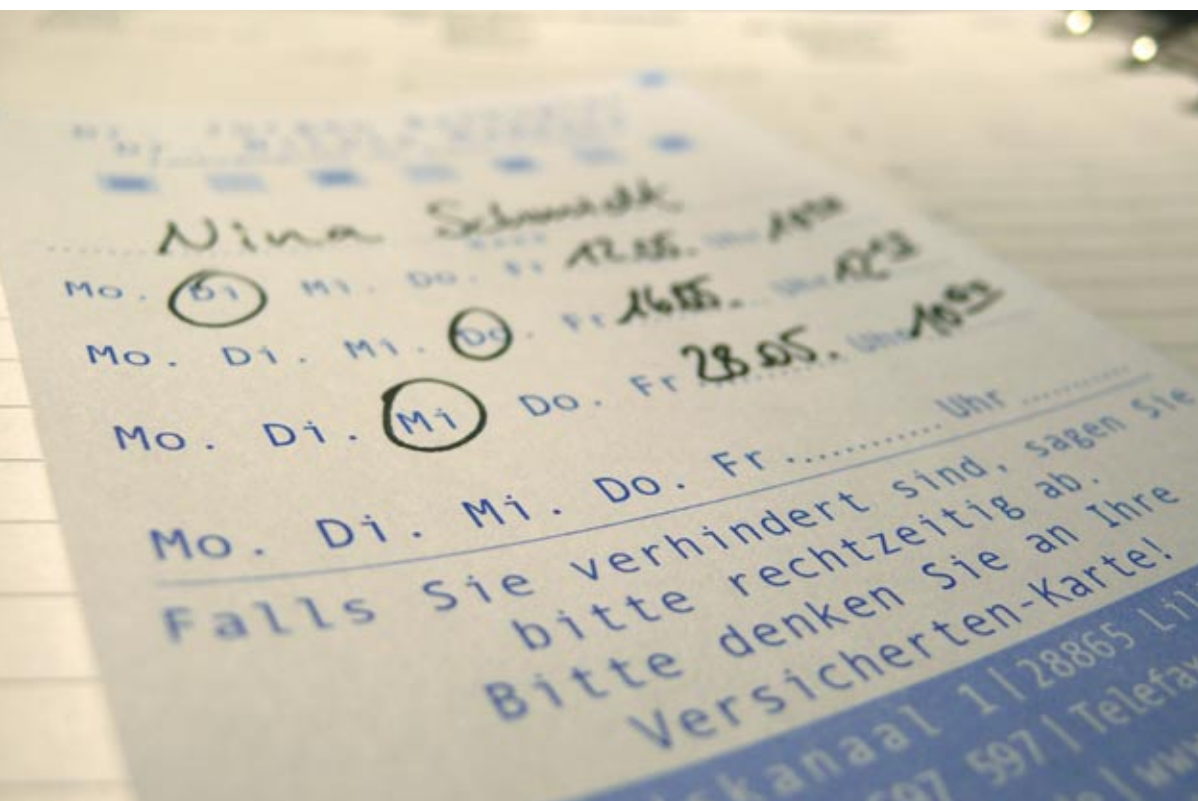 Nina Schmidt
Mo. Di Mi. Do. Fr 12.05. Uhr
Mo. Di. Mi. Do. Fr Uhr
Mo. Di. Mi Do. Fr 28.05. Uhr
Mo. Di. Mi. Do. Fr ............ Uhr ............
Falls Sie verhindert sind, sagen Sie
bitte rechtzeitig ab.
Bitte denken Sie an Ihre
Versicherten-Karte!
skanaal 1 | 28865 Lil
597 | Telefax
www